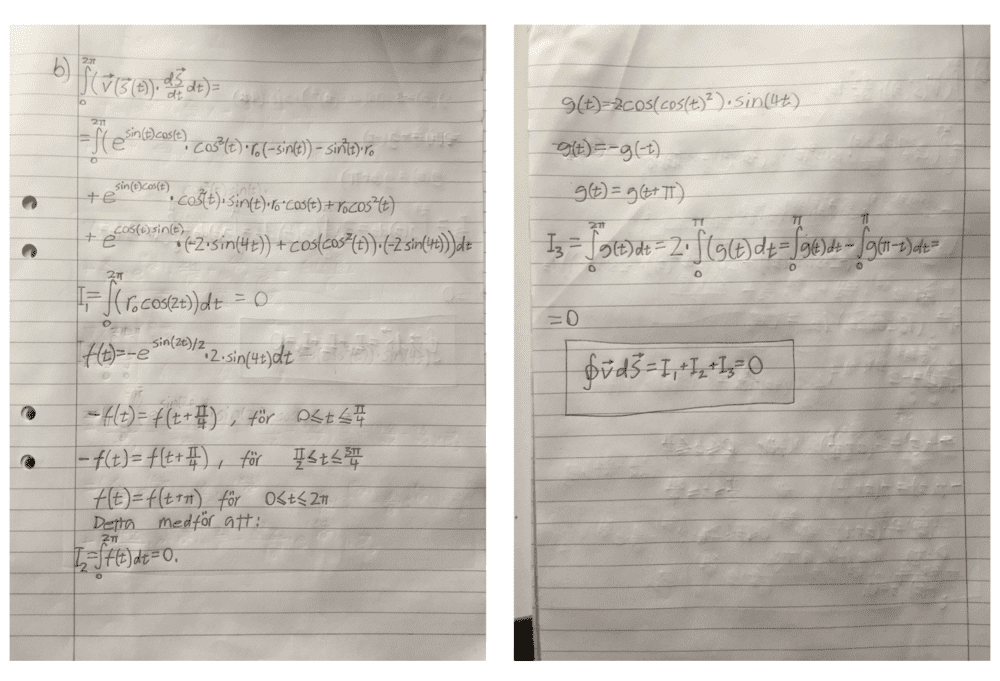 b) ∫₀^{2π} (v⃗(s⃗(t))·ds⃗/dt dt)=
=∫₀^{2π} (e^{sin(t)cos(t)}·cos²(t)·r₀(-sin(t))-sin²(t)·r₀
+e^{sin(t)cos(t)}·cos²(t)·sin(t)·r₀·cos(t)+r₀cos²(t)
+e^{cos(t)sin(t)}·(-2·sin(4t))+cos(cos²(t))·(-2sin(4t)))dt
I₁=∫₀^{2π} (r₀cos(2t))dt = 0
f(t)=-e^{sin(2t)/2}·2·sin(4t)dt
-f(t)=f(t+π/4), för 0≤t≤π/4
-f(t)=f(t+π/4), för π/2≤t≤3π/4
f(t)=f(t+π) för 0≤t≤2π
Detta medför att:
I₂=∫₀^{2π} f(t)dt=0.
g(t)=-2cos(cos(t)²)·sin(4t)
g(t)=-g(-t)
g(t)=g(t+π)
I₃=∫₀^{2π} g(t)dt=2·∫₀^{π} (g(t)dt=∫₀^{π} g(t)dt-∫₀^{π} g(π-t)dt=
=0
∮v⃗ds⃗=I₁+I₂+I₃=0